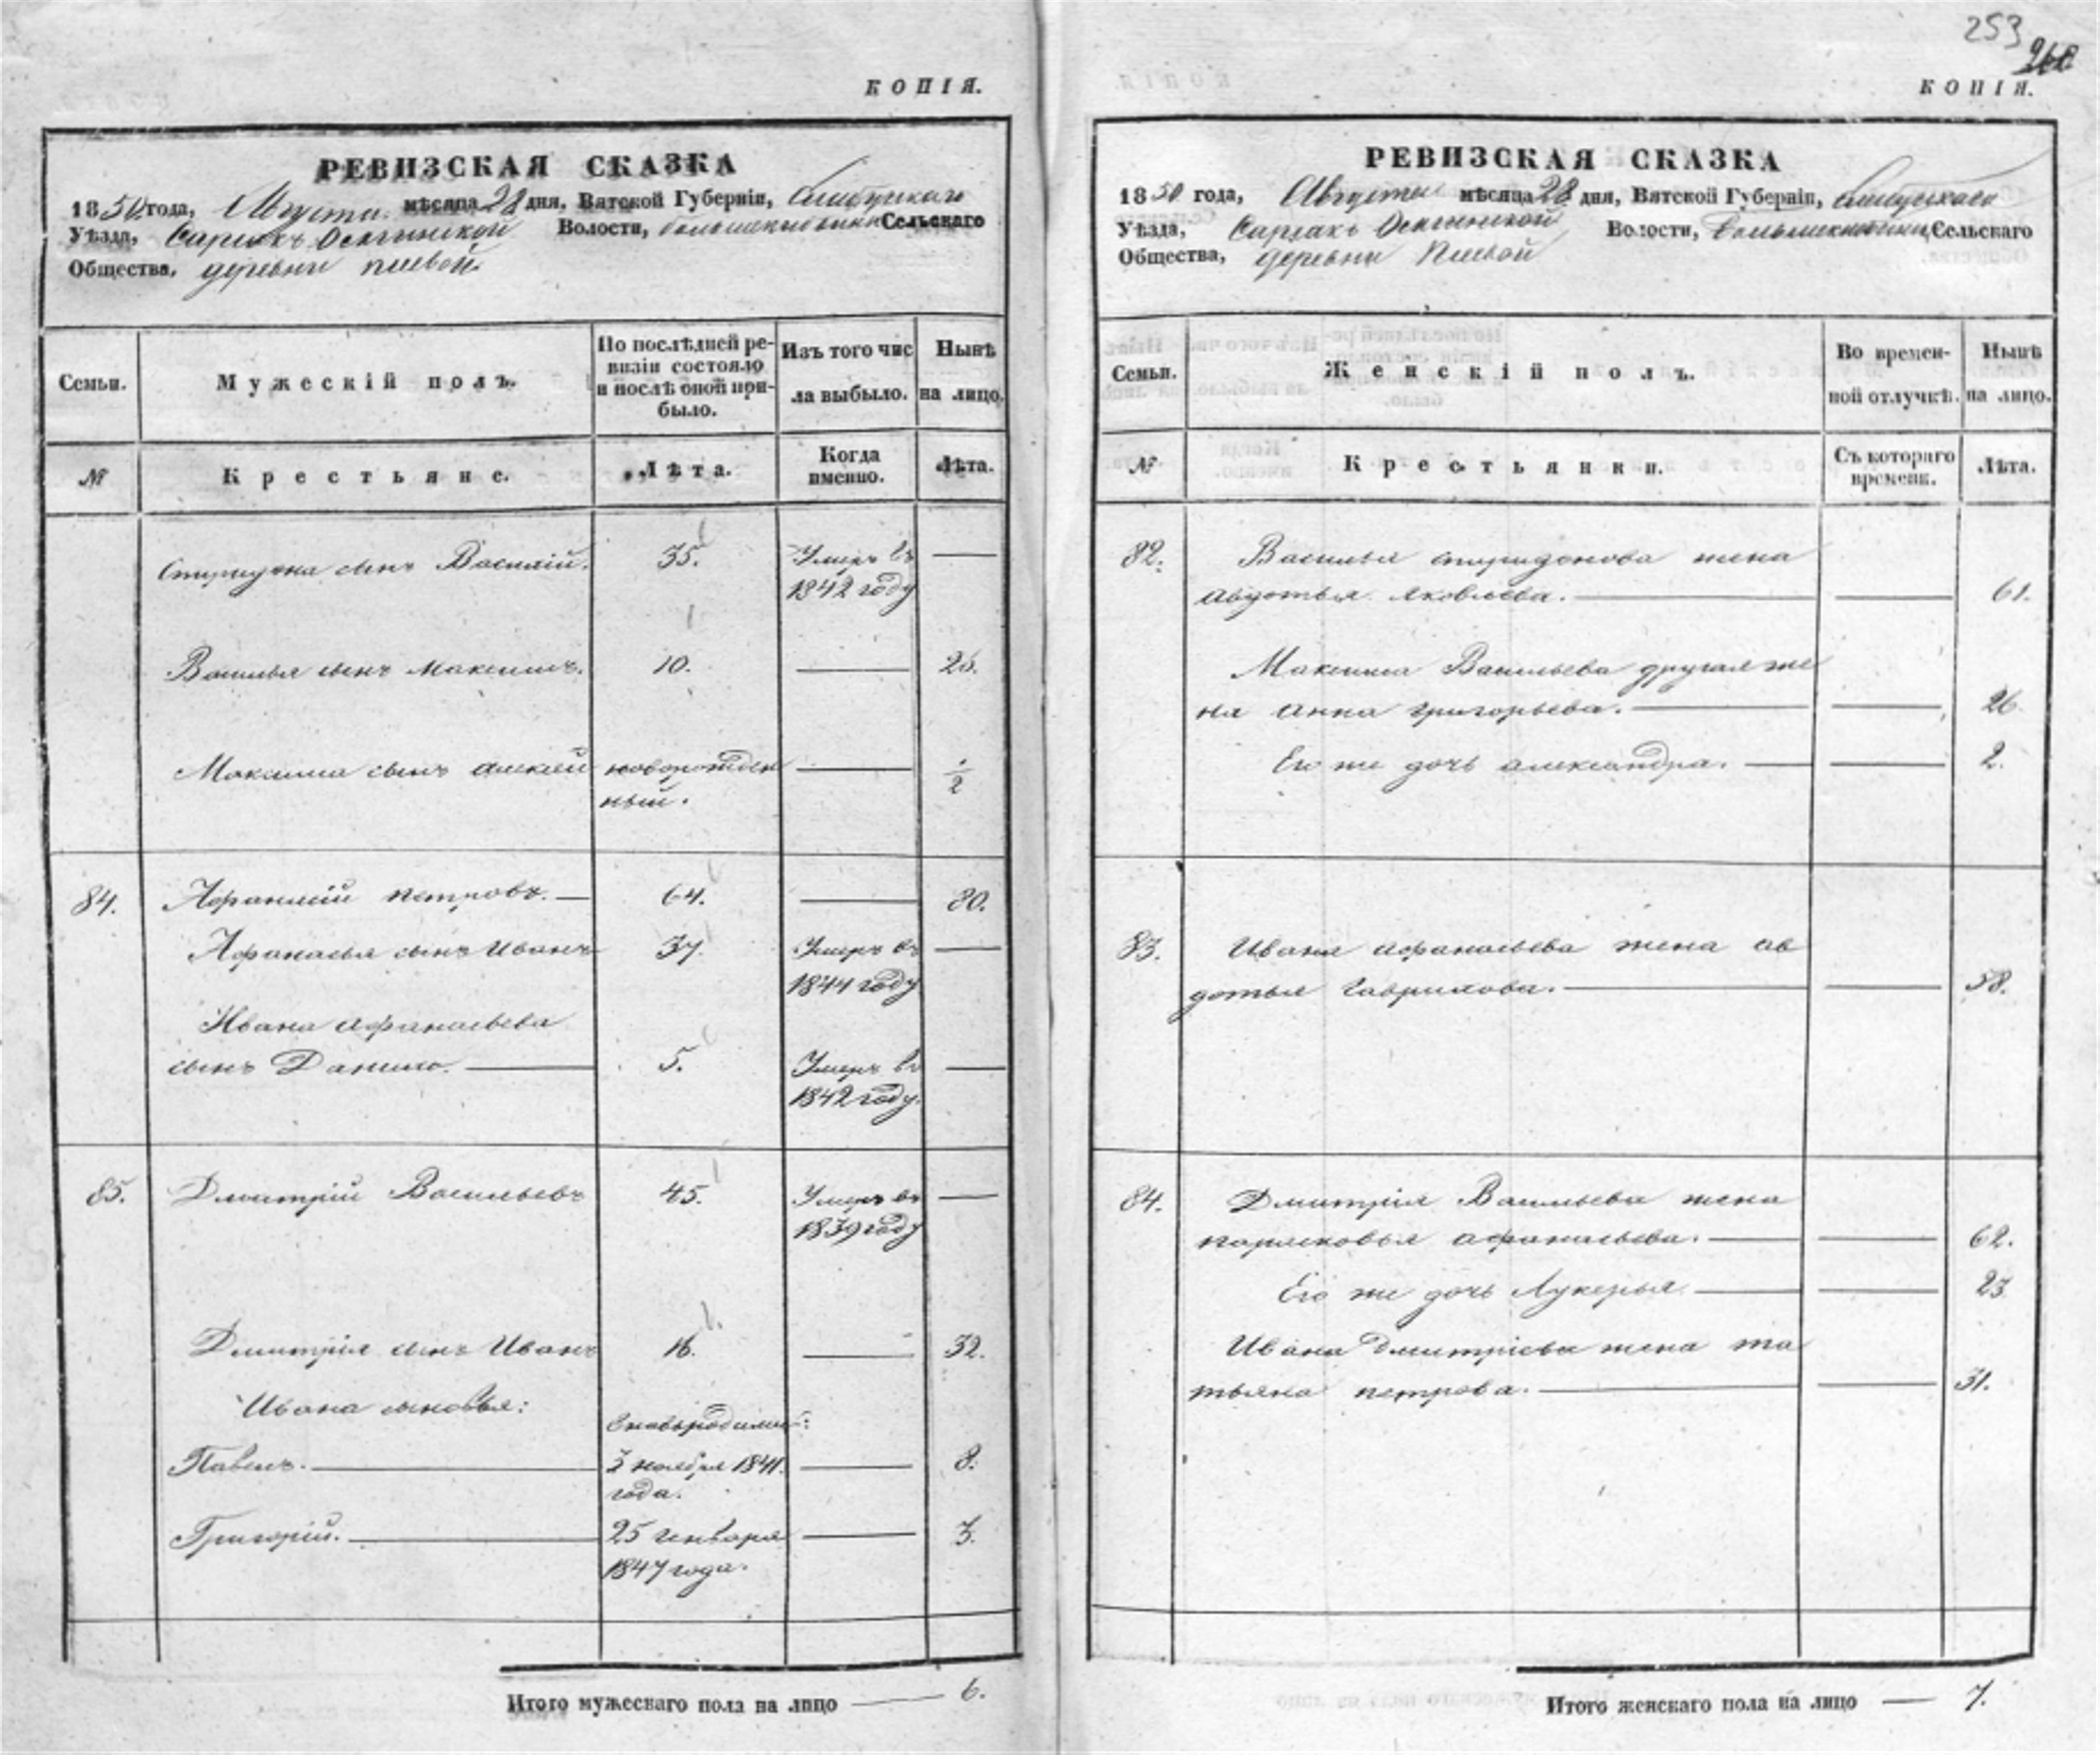 253
260
КОПІЯ.
РЕВИЗСКАЯ СКАЗКА
1850 года, Августа мѣсяца 28 дня, Вятской Губерніи,
Уѣзда, Волости, Сельскаго
Общества, деревни
Семьи.
Мужескій полъ.
По послѣдней ре-
визіи состояло
и послѣ оной при-
было.
Изъ того чис
ла выбыло.
Нынѣ
на лицо.
№
Крестьяне.
Лѣта.
Когда
именно.
Лѣта.
Спиридона сынъ Василій. 35. Умеръ въ —
1842 году
Василья сынъ Максимъ. 10. — 26.
Максима сынъ Алексей новорожден —
ный. 1/2
84. Афанасій Петровъ. — 64. — 80.
Афанасья сынъ Иванъ 37. Умеръ въ —
1844 году
Ивана Афанасьева
сынъ Данило. — 5. Умеръ въ —
1842 году.
85. Дмитрій Васильевъ 45. Умеръ въ —
1839 году
Дмитрія сынъ Иванъ 16. — 32.
Ивана сыновья:
Павелъ. — 3 ноября 1841. — 8.
года.
Григорій. — 25 генваря — 3.
1847 года.
Итого мужескаго пола на лицо — 6.
КОПІЯ.
РЕВИЗСКАЯ СКАЗКА
1850 года, Августа мѣсяца 28 дня, Вятской Губерніи,
Уѣзда, Волости, Сельскаго
Общества, деревни
Семьи.
Женскій полъ.
Во времен-
ной отлучкѣ.
Нынѣ
на лицо.
№
Крестьянки.
Съ котораго
времени.
Лѣта.
82. Василья Спиридонова жена
Авдотья Яковлева. — — 61.
Максима Васильева другая же
на Анна Григорьева. — — 26
Его же дочь Александра. — — 2.
83. Ивана Афанасьева жена Ав
дотья Гаврилова. — — 58.
84. Дмитрія Васильева жена
Парасковья Афанасьева. — — 62.
Его же дочь Лукерья — — 23
Ивана Дмитріева жена Та
тьяна Петрова. — — 31.
Итого женскаго пола на лицо — 7.